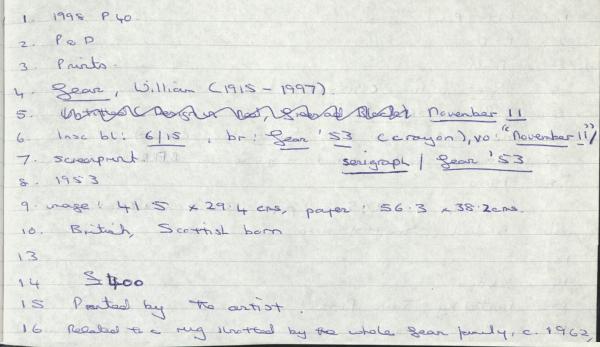 1. 1998 P.40.
2. P & D
3. Prints.
4. Gear, William (1915-1997).
5. November 11
6. Insc bl: 6/15, br: Gear '53 (crayon), vo: "November 11"/
serigraph / Gear '53
7. screenprint
8. 1953
9. image: 41.5 x 29.4 cms, paper: 56.3 x 38.2 cms.
10. British, Scottish born
13
14 £400
15 Printed by the artist.
16 Related to a rug knotted by the whole Gear family, c. 1962,